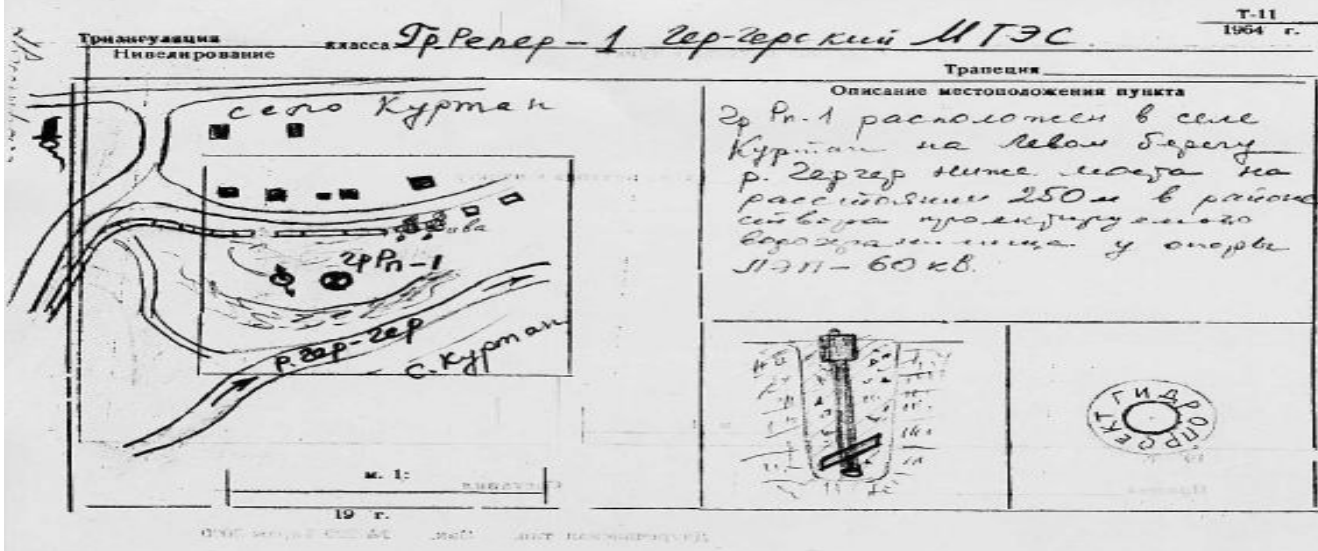 Т-11
1964 г.
Триангуляция
Нивелирование
класса Гр.Репер-1 Гер-Герский МТЭС
Трапеция
село Куртан
ива
грРп-1
р.Гер-Гер
с.Куртан
м. 1:
19 г.
Описание местоположения пункта
Гр Рп-1 расположен в селе
Куртан на левом берегу
р. Гергер ниже моста на
расстоянии 250м в районе
створа проектируемого
водохранилища у опоры
ЛЭП-60кв.
ГИДРОПРОЕКТ